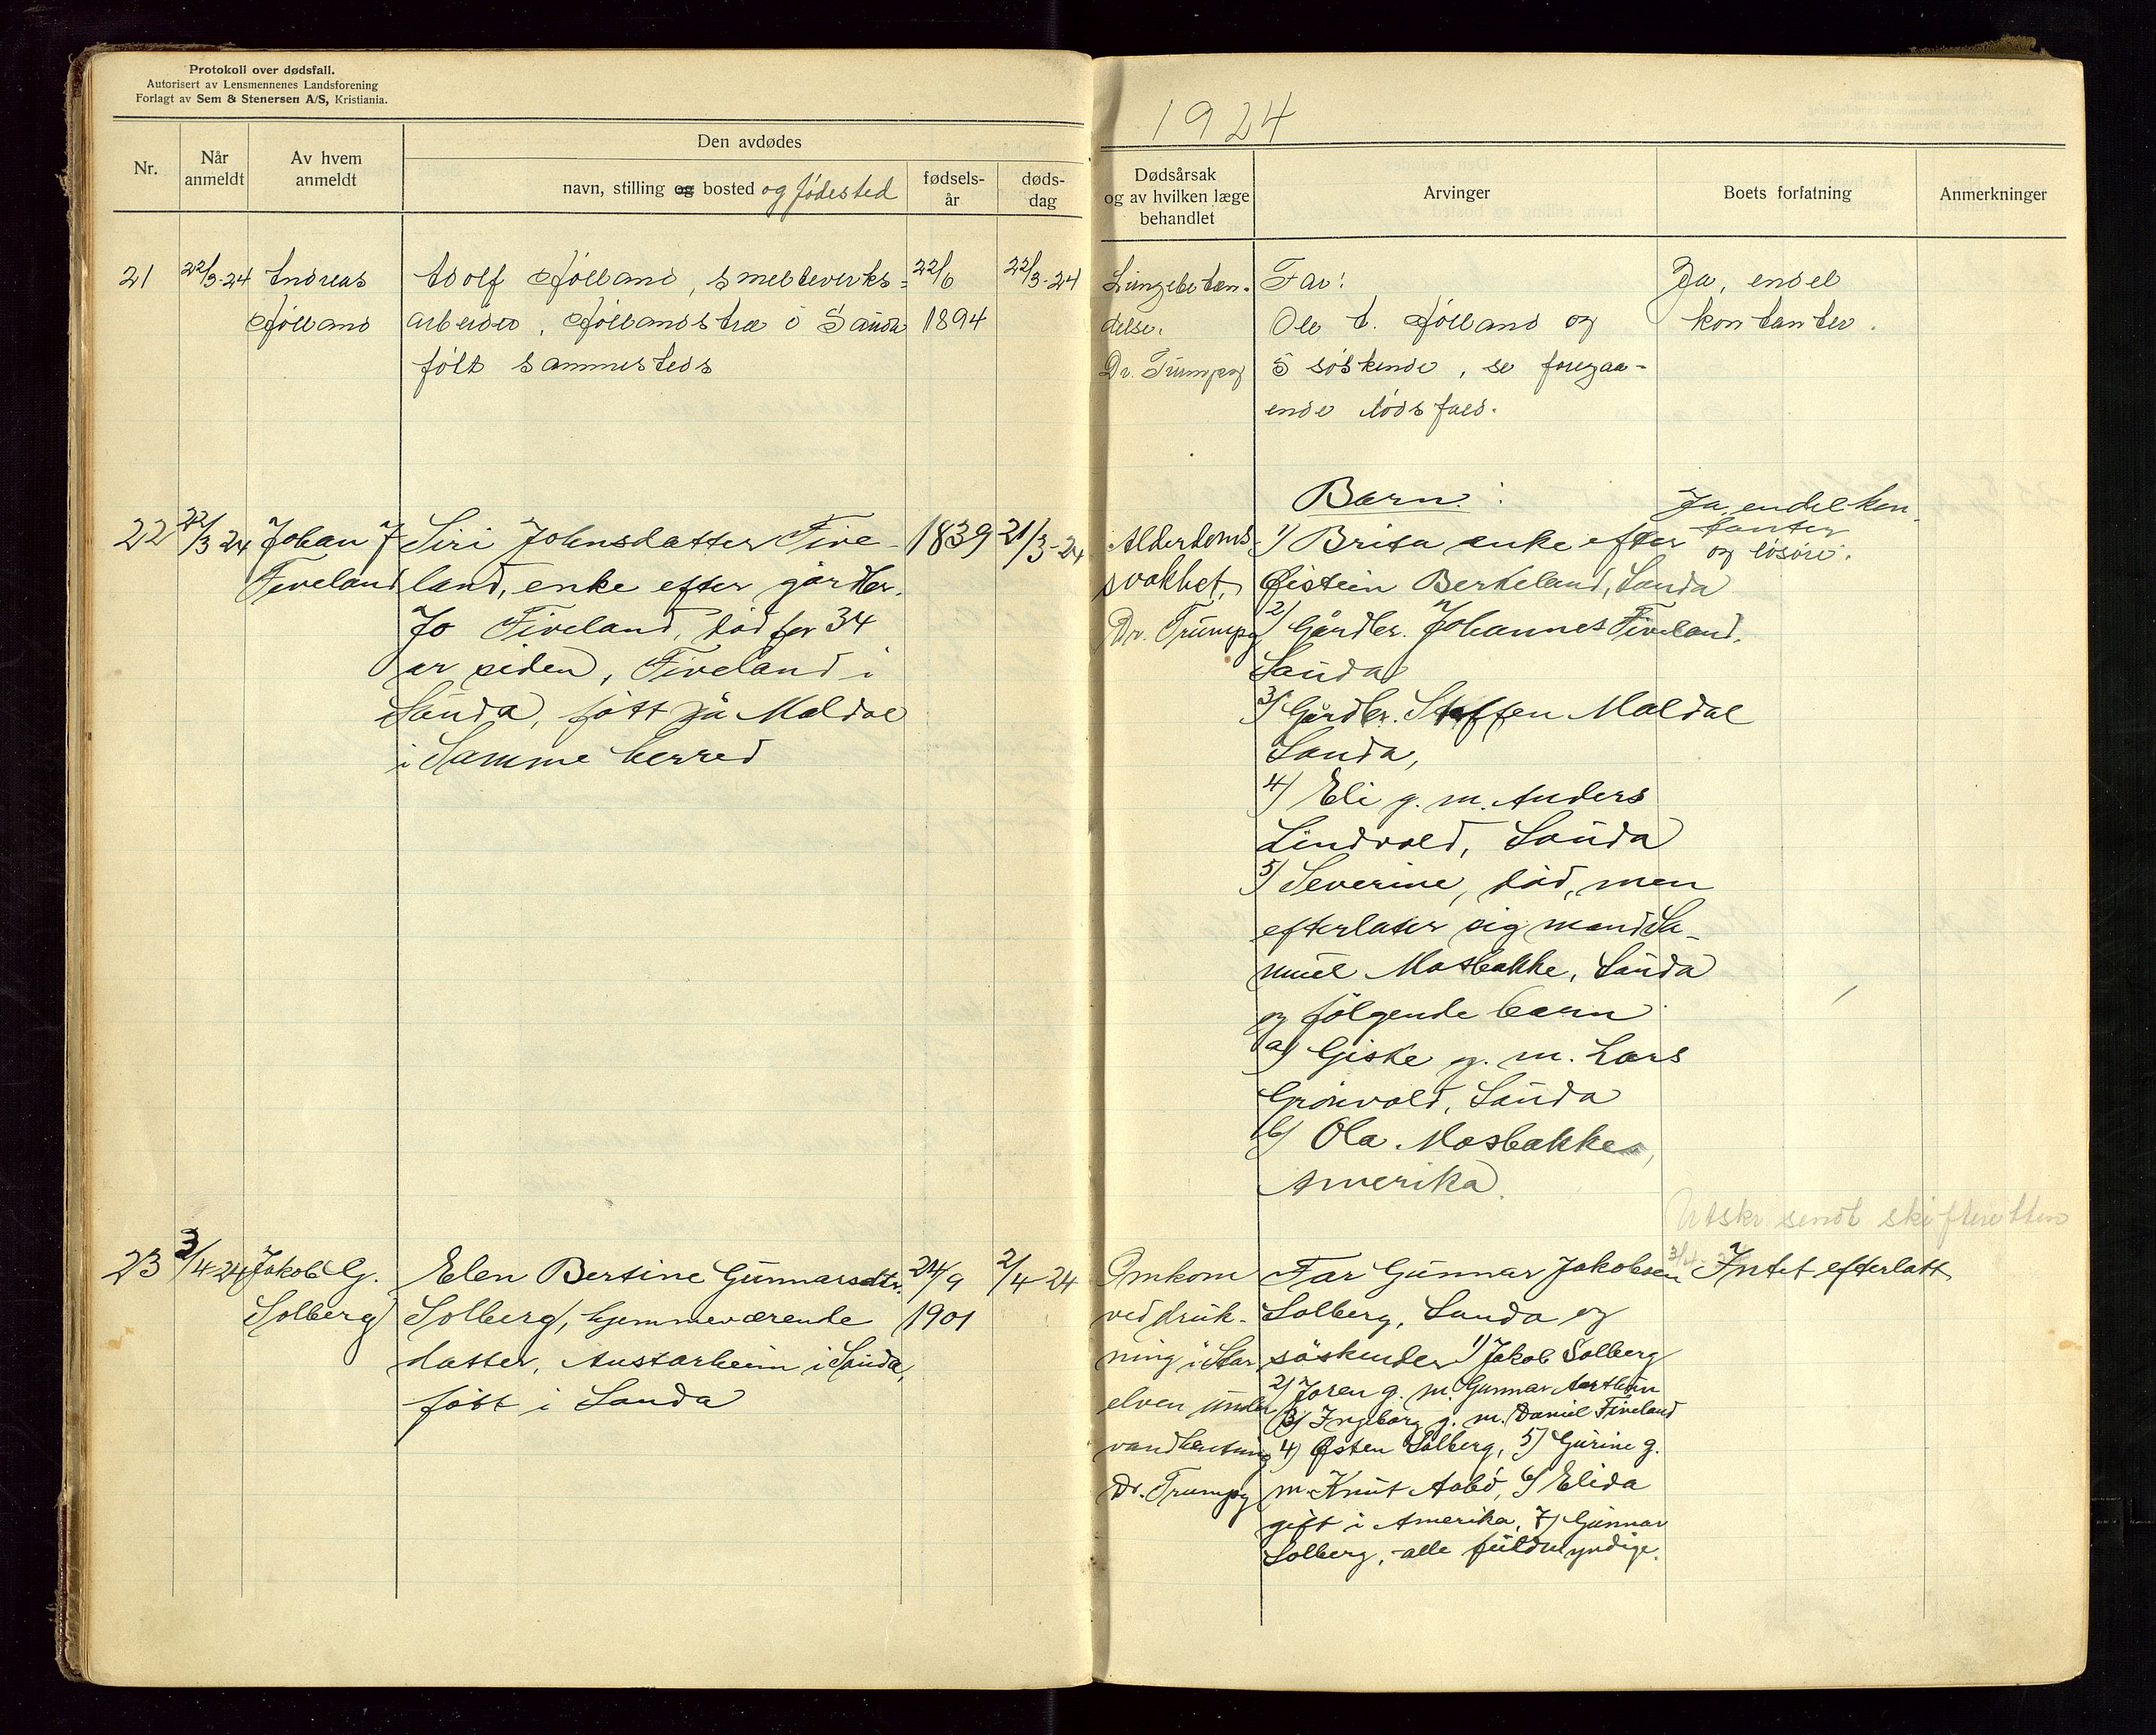 Protokoll over dødsfall.
Autorisert av Lensmennenes Landsforening
Forlagt av Sem & Stenersen A/S, Kristiania.
1924
Nr.
Når anmeldt
Av hvem anmeldt
Den avdødes
navn, stilling og bosted og fødested
fødsels-år
døds-dag
Dødsårsak og av hvilken læge behandlet
Arvinger
Boets forfatning
Anmerkninger
21
22/3-24
Andreas
Jølland
Adolf Jølland, smelteverks-
arbeider, Jøllandstræ i Sauda
født sammesteds
22/6
1894
22/3-24
Lungebetæn-
delse.
Dr. Trumpy
Far:
Ole A. Jølland og
5 søskende, se foregaa-
ende dødsfald.
Ja, endel
kontanter.
22
22/3 24
Johan J
Fiveland
Siri Johnsdatter Five-
land, enke efter gårdbr.
Jo Fiveland, død for 34
år siden, Fiveland i
Sauda, født på Maldal
i Samme herred
1839
21/3-24
Alderdoms-
svakhet,
Dr. Trumpy
Barn:
1) Brita enke efter
Øistein Berkeland, Sauda
2) Gårdbr. Johannes Fiveland,
Sauda
3) Gårdbr. Steffen Maldal
Sauda,
4) Eli g. m. Anders
Lindvold, Sauda
5) Severine, død, men
efterlater sig mand Sa-
muel Mosbakke, Sauda
og følgende barn
a) Giske g. m. Lars
Grønvold, Sauda
b) Ola Mosbakke,
Amerika.
Ja, endel kon-
tanter
og løsøre.
Utskr. sendt skifteretten
3/4
23
3/4-24
Jakob G.
Solberg
Elen Bertine Gunnarsdtr.
Solberg, hjemmeværende
datter, Austarheim i Sauda,
født i Sauda
24/9
1901
2/4-24
Omkom
ved druk-
ning i Stor
elven under
vandhentning
Dr. Trumpy
Far Gunnar Jakobsen
Solberg, Sauda og
søskender 1) Jakob Solberg
2) Joren g. m. Gunnar
3) Ingeborg g. m. Daniel Fiveland
4) Østen Solberg, 5) Gurine g.
m. Knut Aabø, 6) Elida
gift i Amerika, 7) Gunnar
Solberg, -alle fuldmyndige.
Intet efterlatt